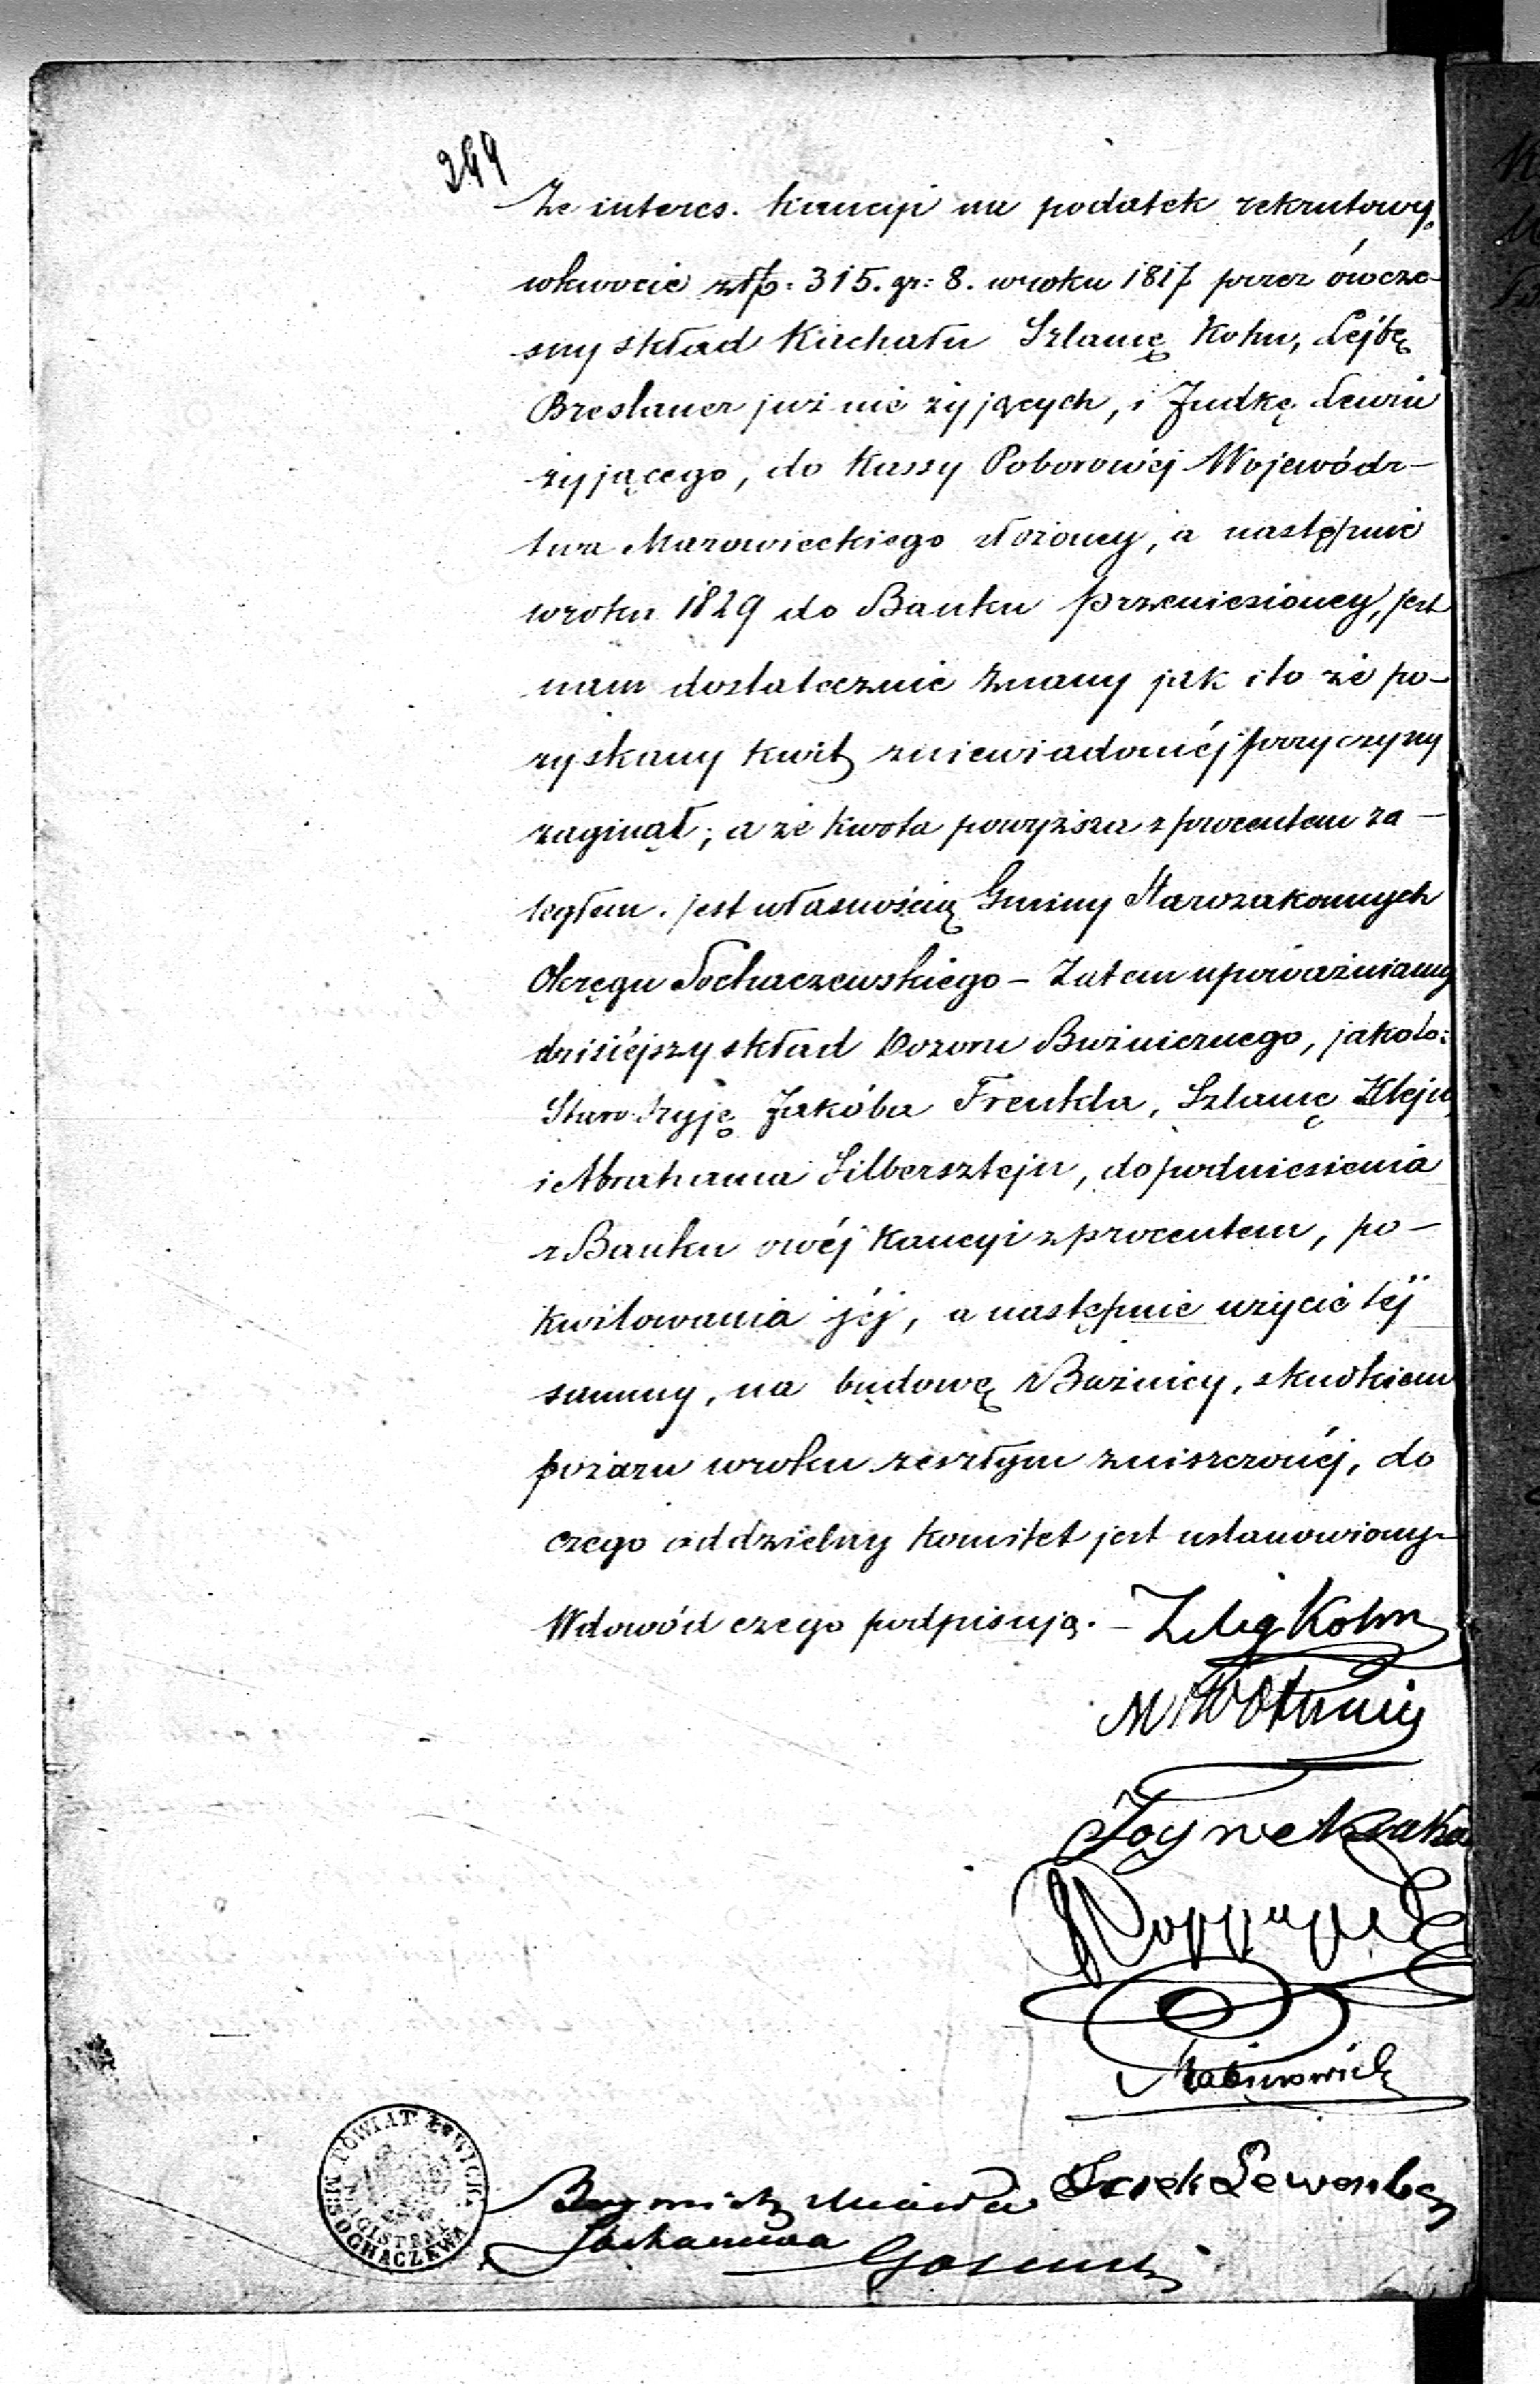 299
Że interes. kaucyi na podatek rekrutowy,
wkwocie złp: 315. gr: 8. wroku 1817 przez ówcze-
sny skład Kachału Szlamę Kohn, Lejbę
Breslauer już nie żyjących, i Judkę Lewin
żyjącego, do Kassy Poborowéj Wojewódz-
twa Mazowieckiego złożoney, a następnie
wroku 1829 do Banku przeniesioney, jest
nam dostatecznie znany jak ito że po-
zyskany kwit zniewiadoméj przyczyny
zaginął; a że kwota powyższa z procentem za-
ległem. jest własnością Gminy Starozakonnych
Okręgu Sochaczewskiego – Zatem upoważniamy
dzisiéjszy skład Dozoru Bużnicznego, jakoto:
Szyję Jakóba Frenkla, Szlamę Klejn,
i Abrahama Silbersztejn, do podniesienia
z Banku owéj Kaucyi z procentem, po-
kwitowania jéj, a następnie użycie téj
summy, na budowę Bużnicy, skutkiem
pożaru wroku zeszłym zniszczonéj, do
czego oddzielny Komitet jest ustanowiony–
Wdowód czego podpisują. – Zelig Kohn
Icek Lewenberg
Burmistrz Miasta
Sochaczewa
POWIAT ŁOWICK.
MAGISTRAT
M. SOCHACZEWA